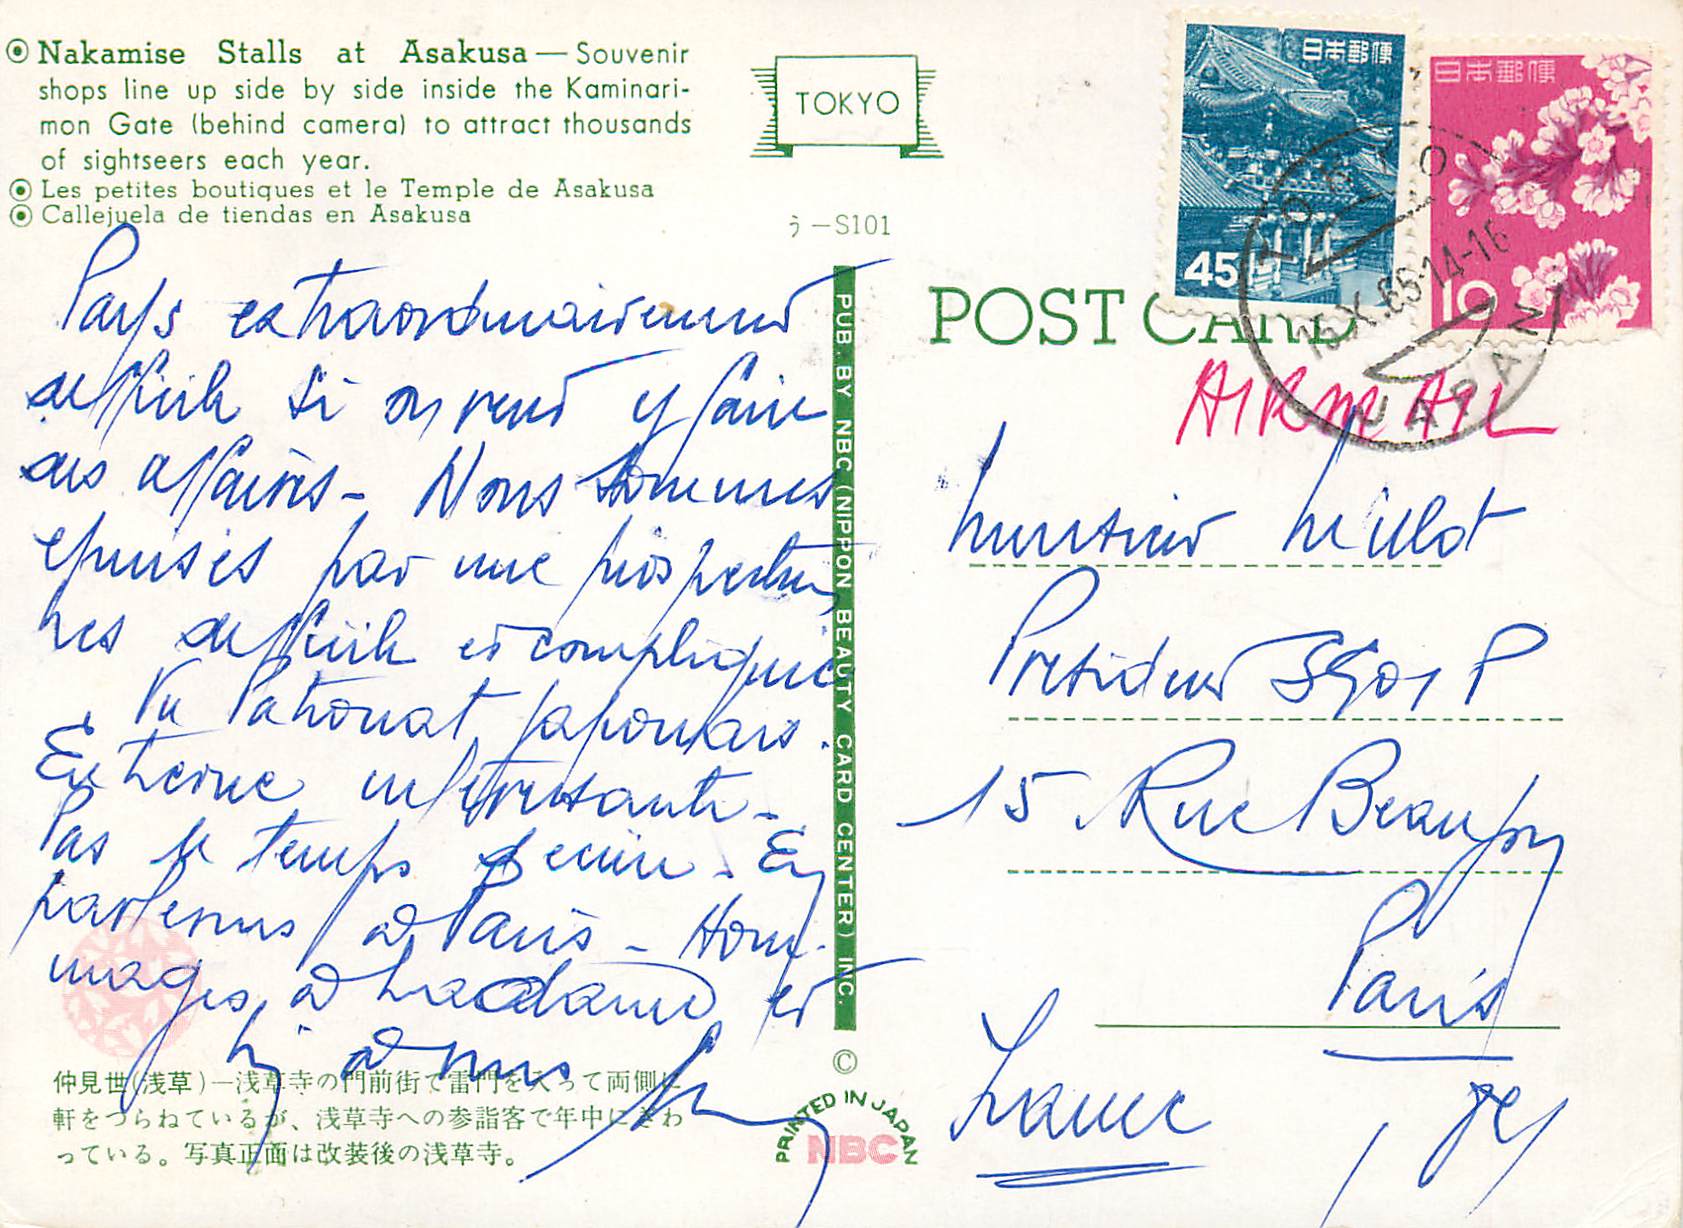 Nakamise Stalls at Asakusa — Souvenir
shops line up side by side inside the Kaminari-
mon Gate (behind camera) to attract thousands
of sightseers each year.
Les petites boutiques et le Temple de Asakusa
Callejuela de tiendas en Asakusa
TOKYO
う-S101
日本郵便
45
日本郵便
10
TOKYO
16.X.65.14-16
JAPAN
POST CARD
AIRMAIL
Pays extraordinairement
difficile si on veut y faire
des affaires - Nous sommes
épuisés par une prospection
très difficile et compliquée
Vu Patronat japonais.
Extreme intéressante -
Pas le temps d'écrire. En
parlerons à Paris - Hom-
mages à Madame et
à vous
PUB. BY NBC (NIPPON BEAUTY CARD CENTER) INC.
Monsieur Millot
President
15 Rue Beaujon
Paris
France
仲見世(浅草)—浅草寺の門前街で雷門を入って両側に
軒をつらねているが、浅草寺への参詣客で年中にぎわ
っている。写真正面は改装後の浅草寺。
©
PRINTED IN JAPAN
NBC